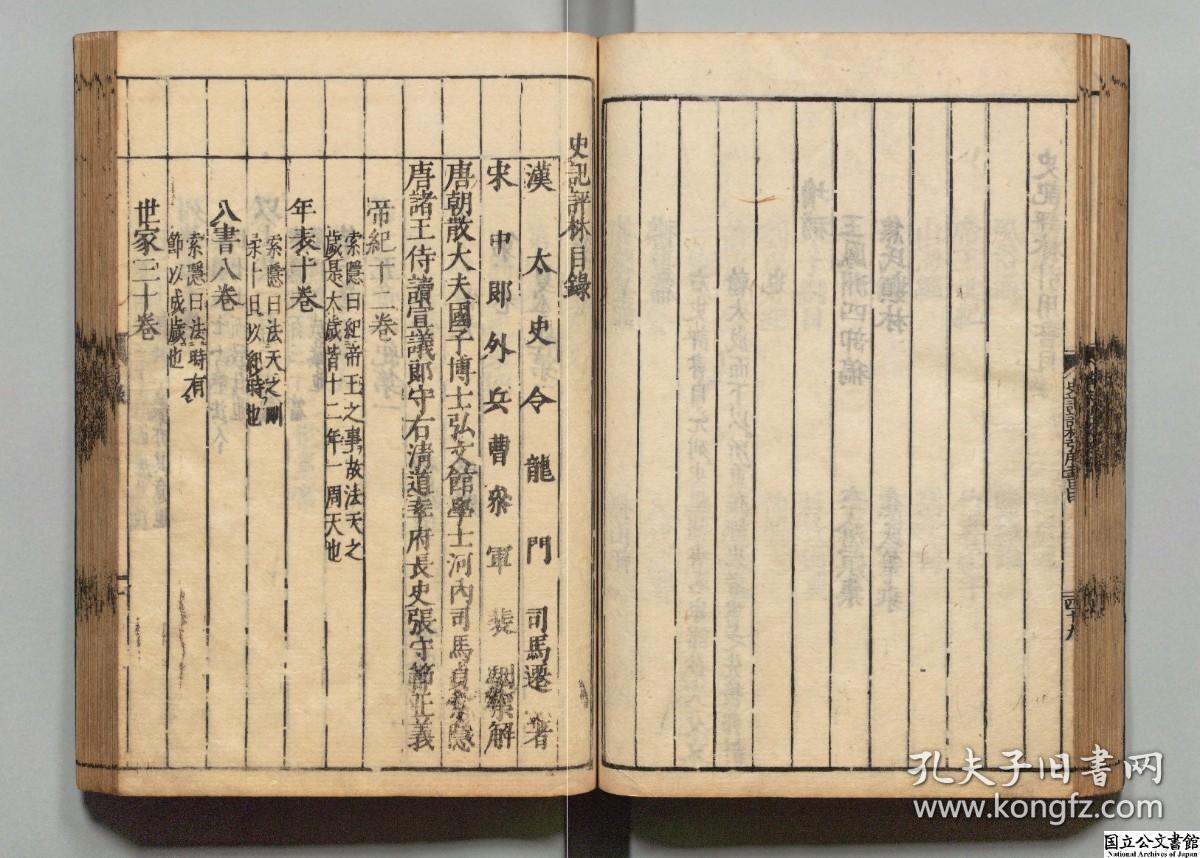 史記評林引用書目
四十九
史記評林目錄
漢太史令龍門司馬遷著
宋中郎外兵曹參軍裴駰集解
唐朝散大夫國子博士弘文館學士河內司馬貞索隱
唐諸王侍讀宣議郎守右清道率府長史張守節正義
帝紀十二卷
索隱曰紀帝王之事故法天之
歲是大歲皆十二年一周天也
年表十卷
索隱曰法天之剛
柔十日以紀時也
八書八卷
索隱曰法時有
節以成歲也
世家三十卷
孔夫子旧书网
www.kongfz.com
国立公文書館
National Archives of Japan